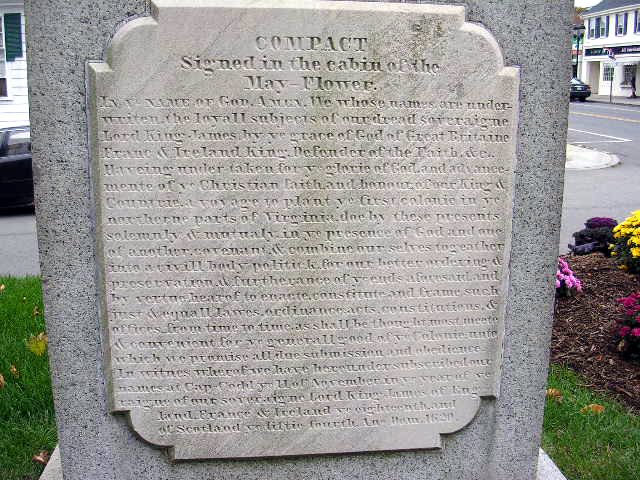 COMPACT
Signed in the cabin of the
May-Flower.
IN Yᵉ NAME OF GOD, AMEN. We whose names are under-
writen, the loyall subjects of our dread soveraigne
Lord King James, by yᵉ grace of God of Great Britaine
Franc & Ireland King, Defender of the Faith, &c.
Haveing under-taken for yᵉ glorie of God, and advance-
mente of yᵉ Christian faith, and honour of our King &
Countrie, a voyage to plant yᵉ first colonie in yᵉ
northerne parts of Virginia, doe by these presents
solemnly & mutualy, in yᵉ presence of God and one
of another, covenant, & combine our selves together
into a civill body politick, for our better ordering &
preservation, & furtherance of yᵉ ends aforesaid, and
by vertue hearof to enacte, constitute and frame such
just & equall lawes, ordinances, acts, constitutions, &
offices, from time to time, as shall be thought most meete
& convenient for yᵉ generall good of yᵉ Colonie, unto
which we promise all due submission and obedience.
In witnes wherof we have hereunder subscribed our
names at Cap-Codd yᵉ 11. of November, in yᵉ year of yᵉ
raigne of our soveraigne Lord King James of Eng-
land, France & Ireland yᵉ eighteenth, and
of Scotland yᵉ fiftie fourth. Ano Dom. 1620.